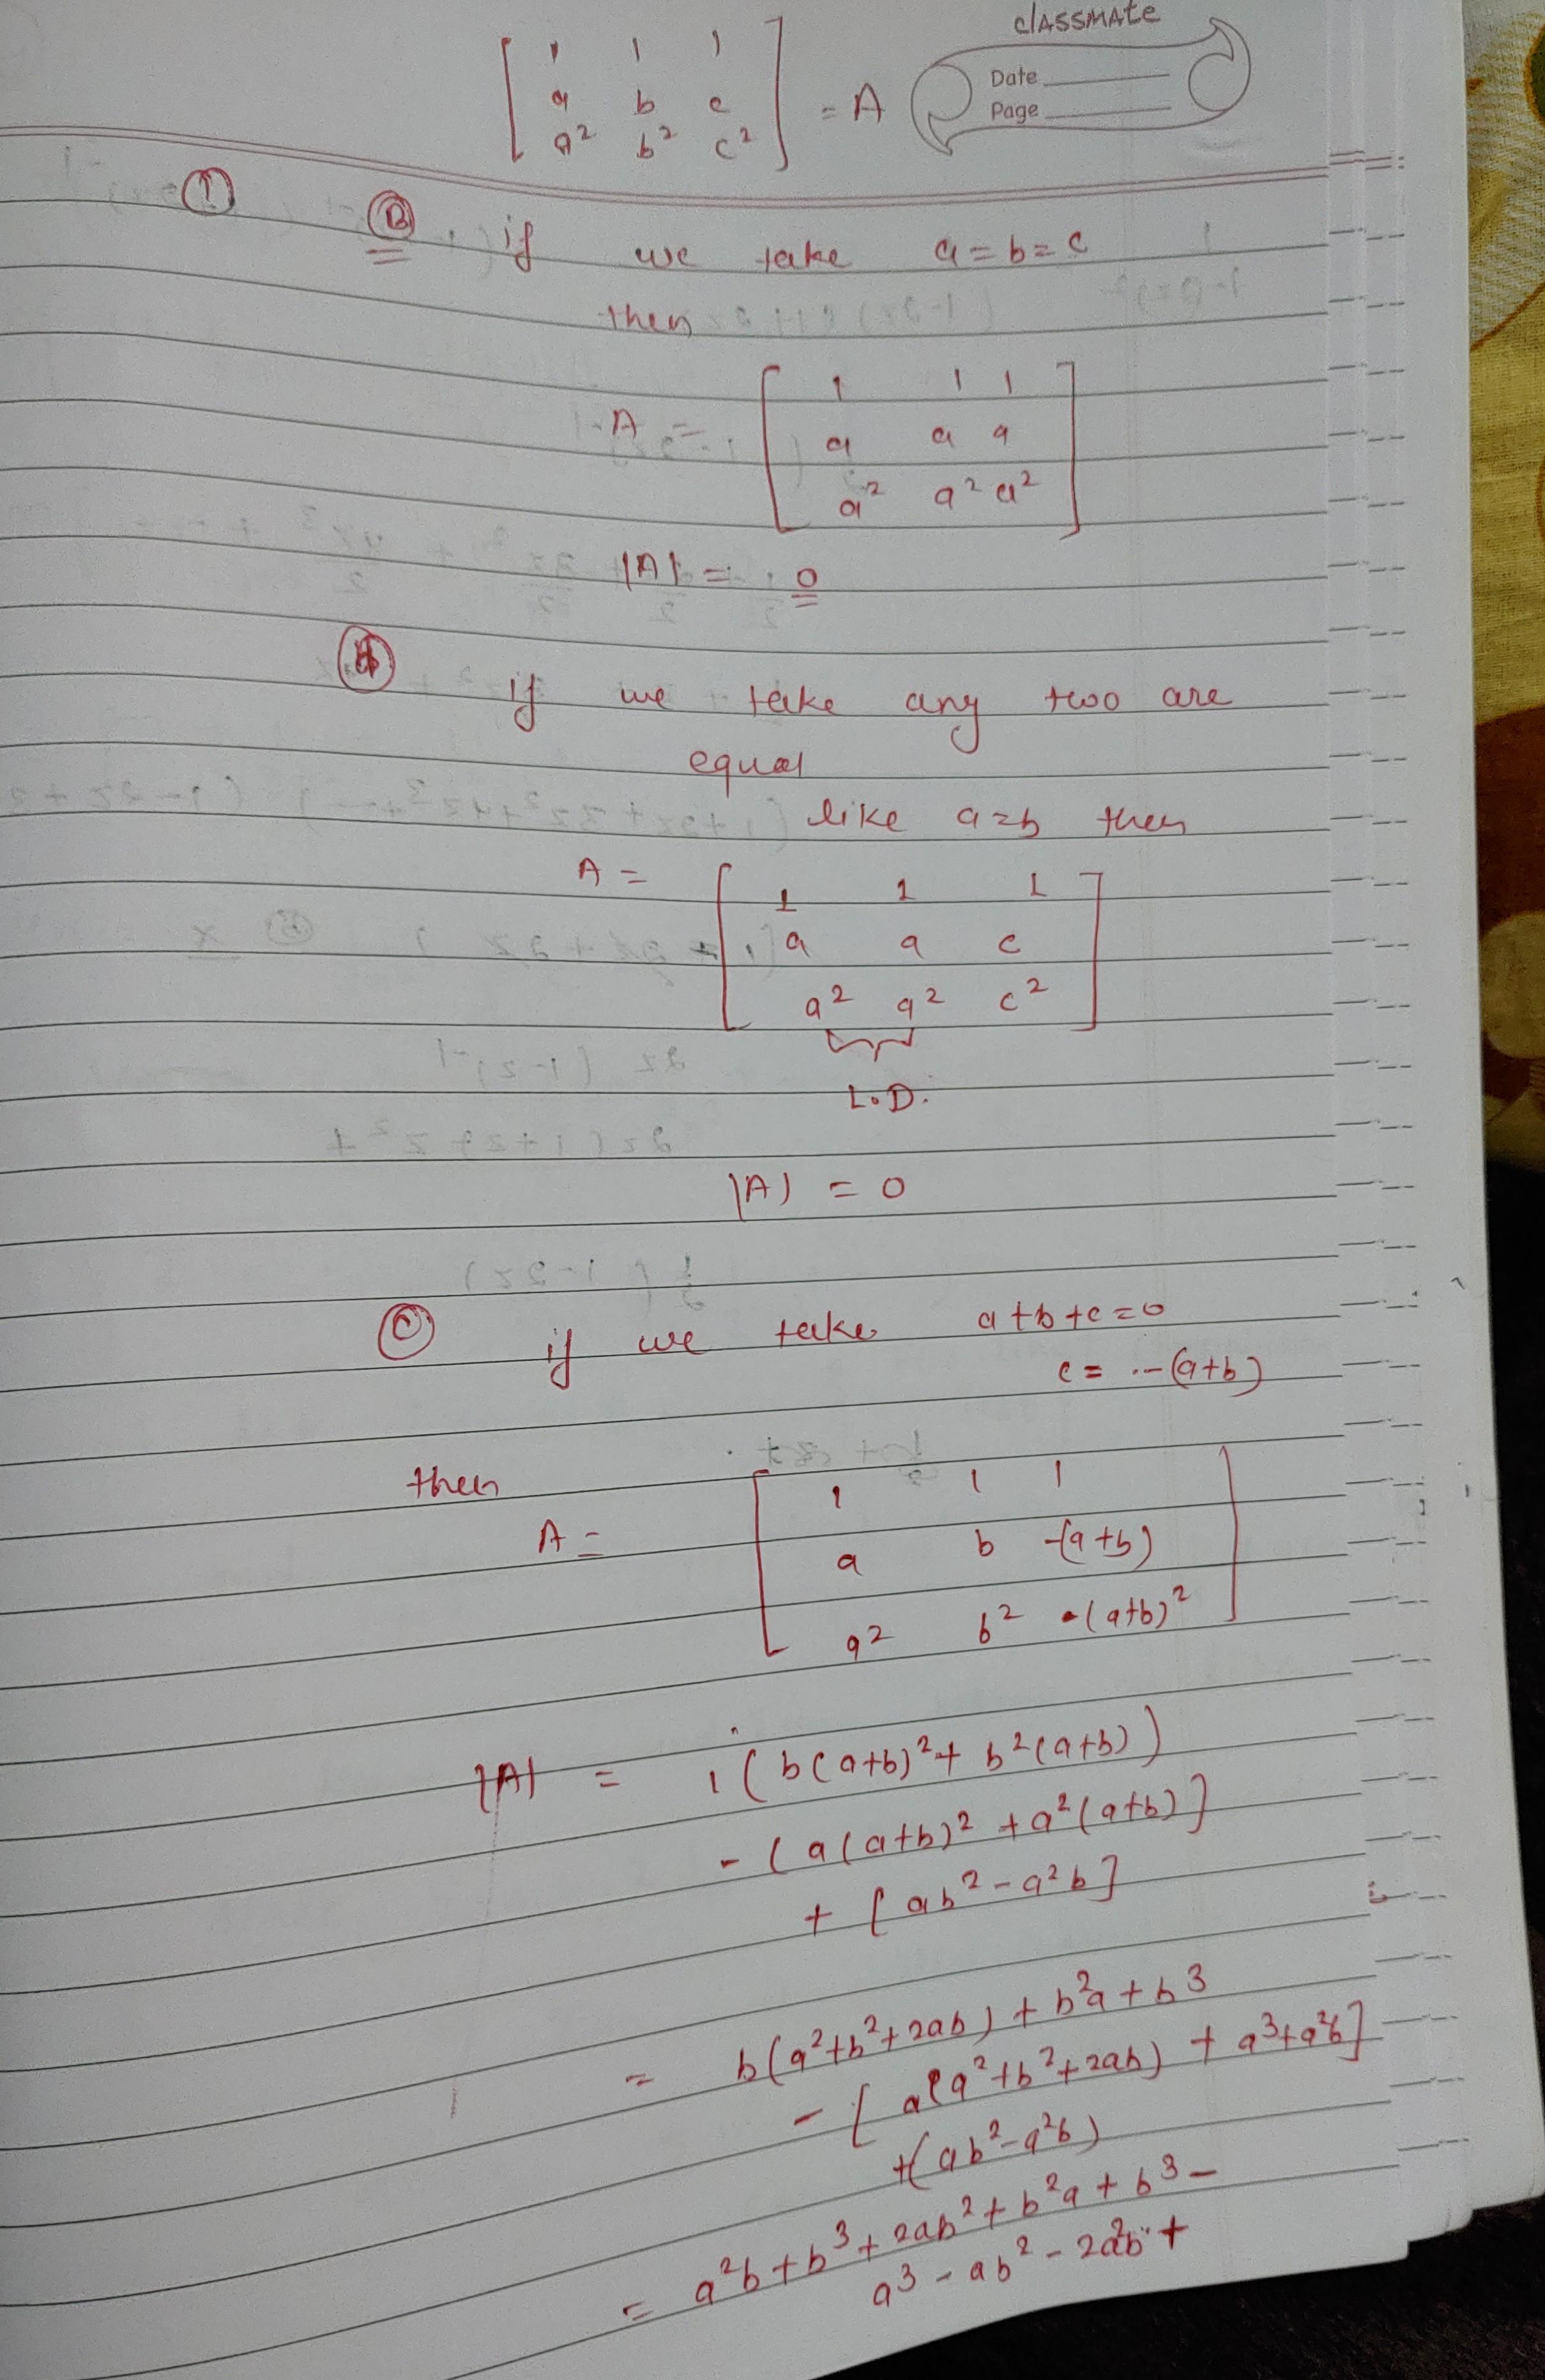 classmate
Date
Page
[ 1 1 1
a b c
a² b² c² ] = A
① Ⓑ if we take a = b = c
then
A = [ 1 1 1
a a a
a² a² a² ]
|A| = 0
if we take any two are
equal
like a=b then
A = [ 1 1 1
a a c
a² a² c² ]
L.D.
|A| = 0
Ⓒ if we take a+b+c=0
c = -(a+b)
then
A = [ 1 1 1
a b -(a+b)
a² b² (a+b)² ]
|A| = 1 ( b(a+b)² + b²(a+b) )
- ( a(a+b)² + a²(a+b) ]
+ [ ab² - a²b ]
= b(a²+b²+2ab) + b²a + b³
- [ a(a²+b²+2ab) + a³+a²b ]
+( ab²-a²b )
= a²b + b³ + 2ab² + b²a + b³ -
a³ - ab² - 2a²b +